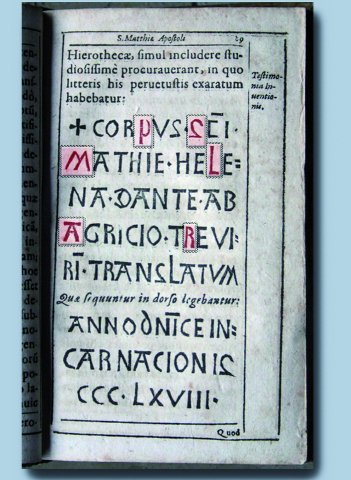 S. Matthiæ Apostoli 29
Hierothecæ, simul includere stu-
diosissimè procurauerant, in quo
litteris his peruetustis exaratum
habebatur:
Testimo-
nia in-
uentio-
nis.
+ CORPVS · SC̄I ·
MATHIE · HELE=
NA · DANTE · AB
AGRICIO · TREVI=
RĪ · TRANSLATVM
Quæ sequuntur in dorso legebantur:
ANNO DN̄ICE IN=
CARNACIONIS
CCC · LXVIII ·
Quod